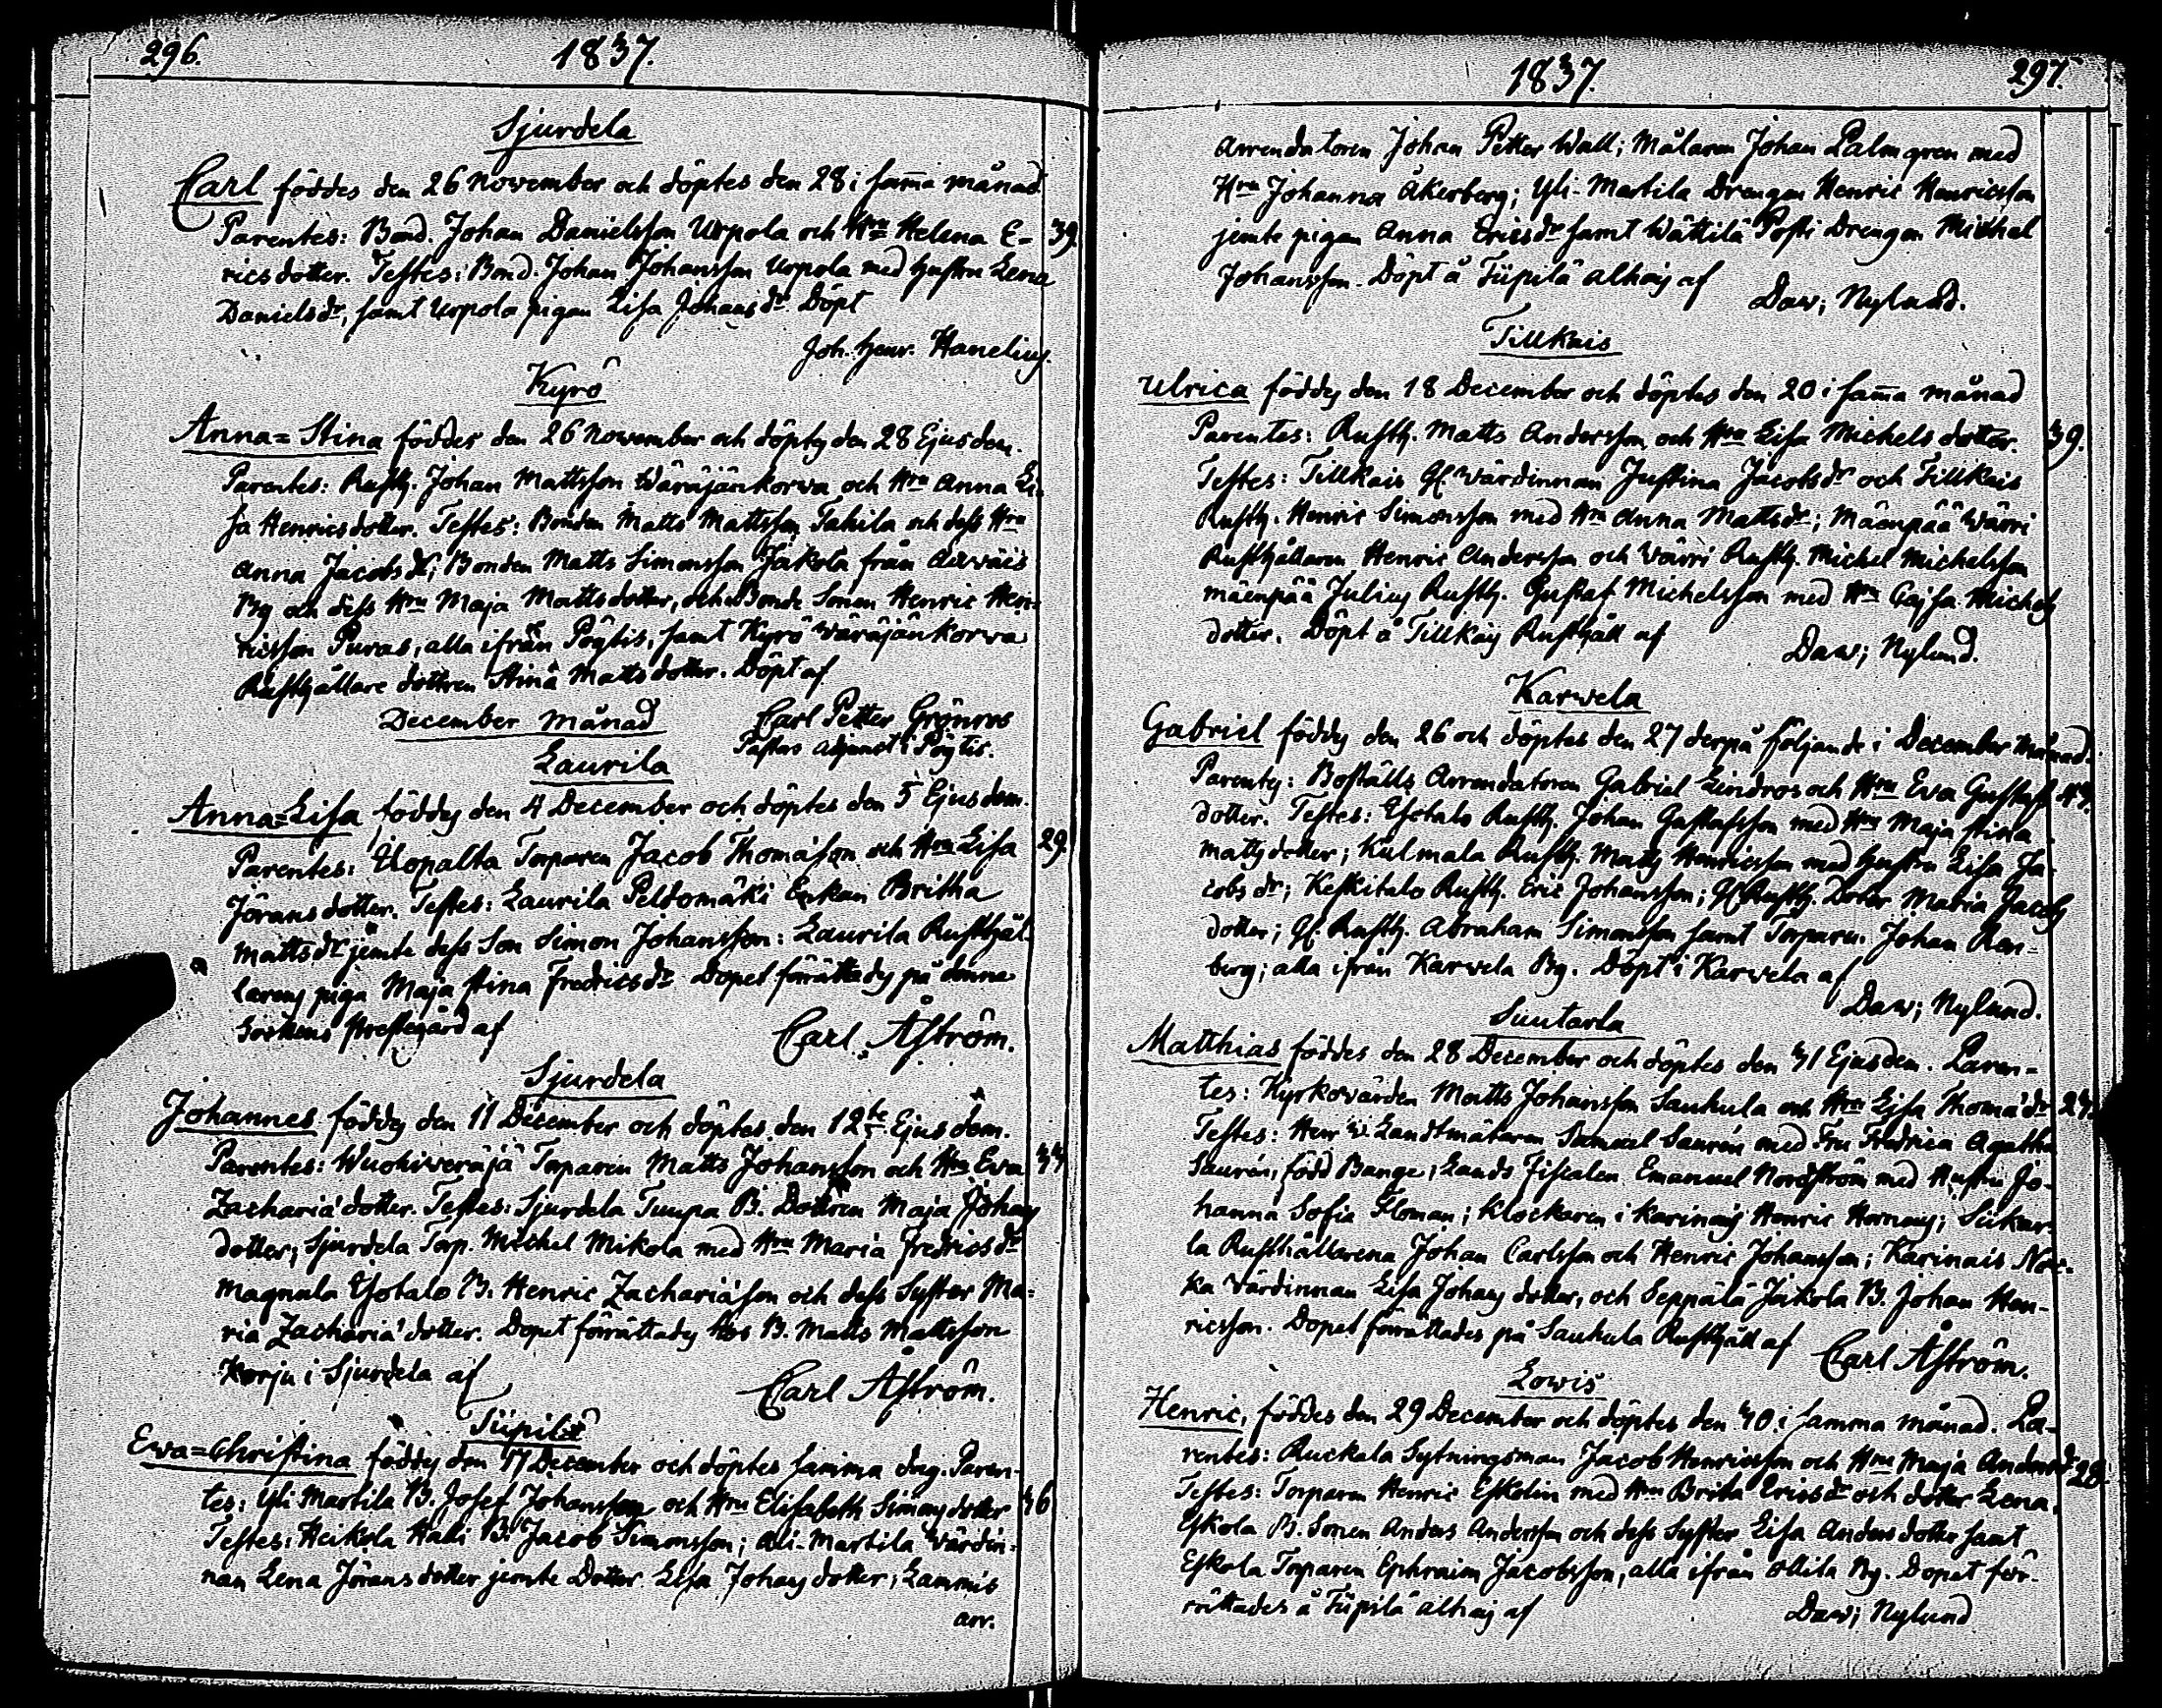 296.
1837.
Sjurdela
Carl föddes den 26 November och döptes den 28 i samma månad.
Parentes: Bond. Johan Danielsson Urpola och Hru Helena E- 39.
ricsdotter. Testes: Bond. Johan Johansson Urpola med hustru Lena
Danielsdr, samt Urpola pigan Lisa Johansdr. Döpt
Joh. Henr. Hanelius.
Kyrö
Anna=Stina föddes den 26 November och döptes den 28 Ejusdem.
Parentes: Rusth. Johan Mattsson Wäräjänkorwa och Hru Anna Li-
sa Henricsdotter. Testes: Bonden Matts Mattsson Tahila och dess Hru
Anna Jacobsdr; Bonden Matts Simonsson Jäkola från
By och dess Hru Maja Mattsdotter, och Bonde Sonen Henric Hen-
ricsson Puras, alla ifrån Pöytis, samt Kyrö Wäräjänkorwa
Rusthållare dottren Stina Mattsdotter. Döpt af
Carl Petter Grönros
Pastors adjunct i Pöytis.
December månad
Laurila
Anna=Lisa föddes den 4 December och döptes den 5 Ejusdem.
Parentes: Torparen Jacob Thomasson och Hru Lisa 29.
Jöransdotter. Testes: Laurila Peldomäki Enkan Britha
Mattsdr jemte dess Son Simon Johansson: Laurila Rusthål-
larens piga Maja Stina Fredricsdr. Dopet förrättades på denna
Sockens Prestegård af
Carl Åström.
Sjurdela
Johannes föddes den 11 December och döptes den 12te Ejusdem.
Parentes: Wuohiweräjä Torparen Matts Johansson och Hru Eva 33
Zachariædotter. Testes: Sjurdela Tuupa B. Dottren Maja Johans
dotter; Sjurdela Torp. Michel Mikola med Hru Maria Fredricsdr
Magnula Isotalo B. Henric Zachariæson och dess Syster Ma-
ria Zachariædotter. Dopet förrättades hos B. Matts Mattsson
Korju i Sjurdela af
Carl Åström.
Tüpilä
Ewa=Christina föddes den 17 December och döptes samma dag. Paren-
tes: Yli Martila B. Josef Johansson och Hru Elisabeth Simonsdotter 36
Testes: Heikola Halli B. Jacob Simonsson; Ali-Martila Wärdin-
nan Lena Jöransdotter jemte Dotter Lisa Johansdotter; Lammis
arr.
1837.
297.
Arrendatoren Johan Petter Wall; Målaren Johan Palmgren med
Hru Johanna Åkerberg; Yli-Martila Drengen Henric Henricsson
jemte pigan Anna Ericsdr samt Wättilä Posti Drengen Michel
Johansson. Döpt å Tüpilä alhaj af
Daw; Nylund.
Tillkais
Ulrica föddes den 18 December och döptes den 20 i samma månad
Parentes: Rusth. Matts Andersson och Hru Lisa Michelsdotter. 39.
Testes: Tillkais Gl. Wärdinnan Justina Jacobsdr och Tillkais
Rusth. Henric Simonsson med Hru Anna Mattsdr; Mäenpää Wärri
Rusthållaren Henric Andersson och Wärri Rusth. Michel Michelsson
Mäenpää Julius Rusth. Gustaf Michelsson med Hru Cajsa Michels
dotter. Döpt å Tillkais Rusthåll af
Daw; Nylund.
Karwela
Gabriel föddes den 26 och döptes den 27 derpå följande i December månad.
Parentes: Boställs Arrendatoren Gabriel Lindros och Hru Eva Gustafs 43.
dotter. Testes: Ylitalo Rusth. Johan Gustafsson med Hru Maja Stina
Mattsdotter; Kulmala Rusth. Matts Henricsson med hustru Lisa Ja-
cobsdr; Keskitalo Rusth. Eric Johansson; Gl. Rusth. Doter Maria Jacobs
dotter; Gl. Rusth. Abraham Simonsson samt Torparen Johan Ren-
berg; alla ifrån Karwela By. Döpt i Karwela af
Daw; Nylund.
Suutarla
Matthias föddes den 28 December och döptes den 31 Ejusdem. Paren-
tes: Kyrkovärden Matts Johansson Sauhula och Hru Lisa Thomædr 27.
Testes: Herr V. Landtmätaren Samuel Saurén med Fru Fredrica Agatha
Saurén, född Bange; Lands Fiscalen Emanuel Nordström med Hustru Jo-
hanna Sofia Floman; Klockaren i Karinais Henric Hornaeus;
la Rusthållarena Johan Carlsson och Henric Johansson; Karinais Nok-
ka Värdinnan Lisa Johansdotter, och Seppälä Jäkola B. Johan Hen-
ricsson. Dopet förrättades på Sauhula Rusthåll af
Carl Åström.
Lowis
Henric, föddes den 29 December och döptes den 30. i samma månad. Pa-
rentes: Ruckala Sytningsman Jacob Henricsson och Hru Maja Andersdr 28.
Testes: Torparen Henric Eskolin med Hru Brita Ericsdr och dotter Lena,
Eskola B. Sonen Anders Andersson och dess Syster Lisa Andersdotter samt
Eskola Torparen Ephraim Jacobsson, alla ifrån Ollila By. Dopet för-
rättades å Tüpilä alhaj af
Daw; Nylund